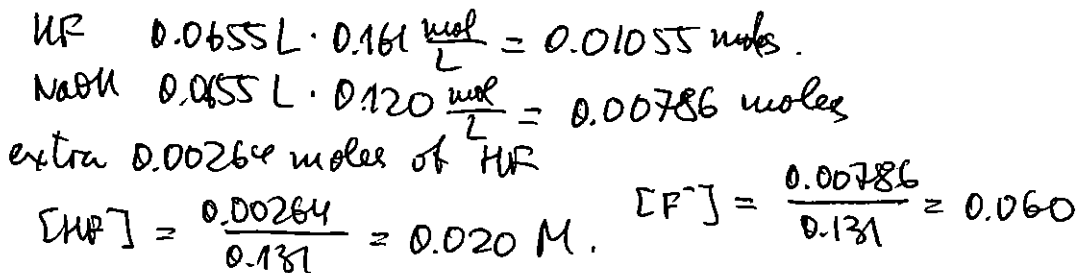 HF 0.0655 L · 0.161 mol/L = 0.01055 moles.
NaOH 0.0655 L · 0.120 mol/L = 0.00786 moles
extra 0.00264 moles of HF
[HF] = 0.00264/0.131 = 0.020 M. [F⁻] = 0.00786/0.131 = 0.060